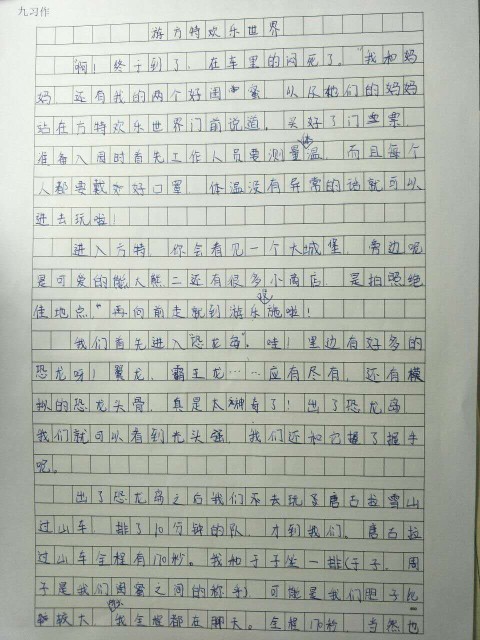 九习作
游方特欢乐世界
"啊！终于到了，在车里的闷死了。"我和妈
妈，还有我的两个好闺蜜，以及她们的妈妈
站在方特欢乐世界门前说道，买好了门票，
准备入园时首先工作人员要测量体温，而且每个
人都要戴好口罩，体温没有异常的话就可以
进去玩啦！
进入方特，你会看见一个大城堡，旁边呢
是可爱的熊大熊二还有很多小商店，是拍照绝
佳地点"再向前走就到游乐设施啦！
我们首先进入"恐龙岛"。哇！里边有好多的
恐龙呀！翼龙，霸王龙……应有尽有，还有模
拟的恐龙头骨，真是太神奇了！出了恐龙岛
我们就可以看到光头强，我们还和它握了握手
呢。
出了恐龙岛之后我们去玩了唐古拉雪山
过山车，排了10分钟的队，才到我们。唐古拉
过山车全程有170秒。我和子子坐一排(子子，周
子是我们闺蜜之间的称乎)可能是我们胆子比
较大，我全程都在聊天。全程170秒，当然也